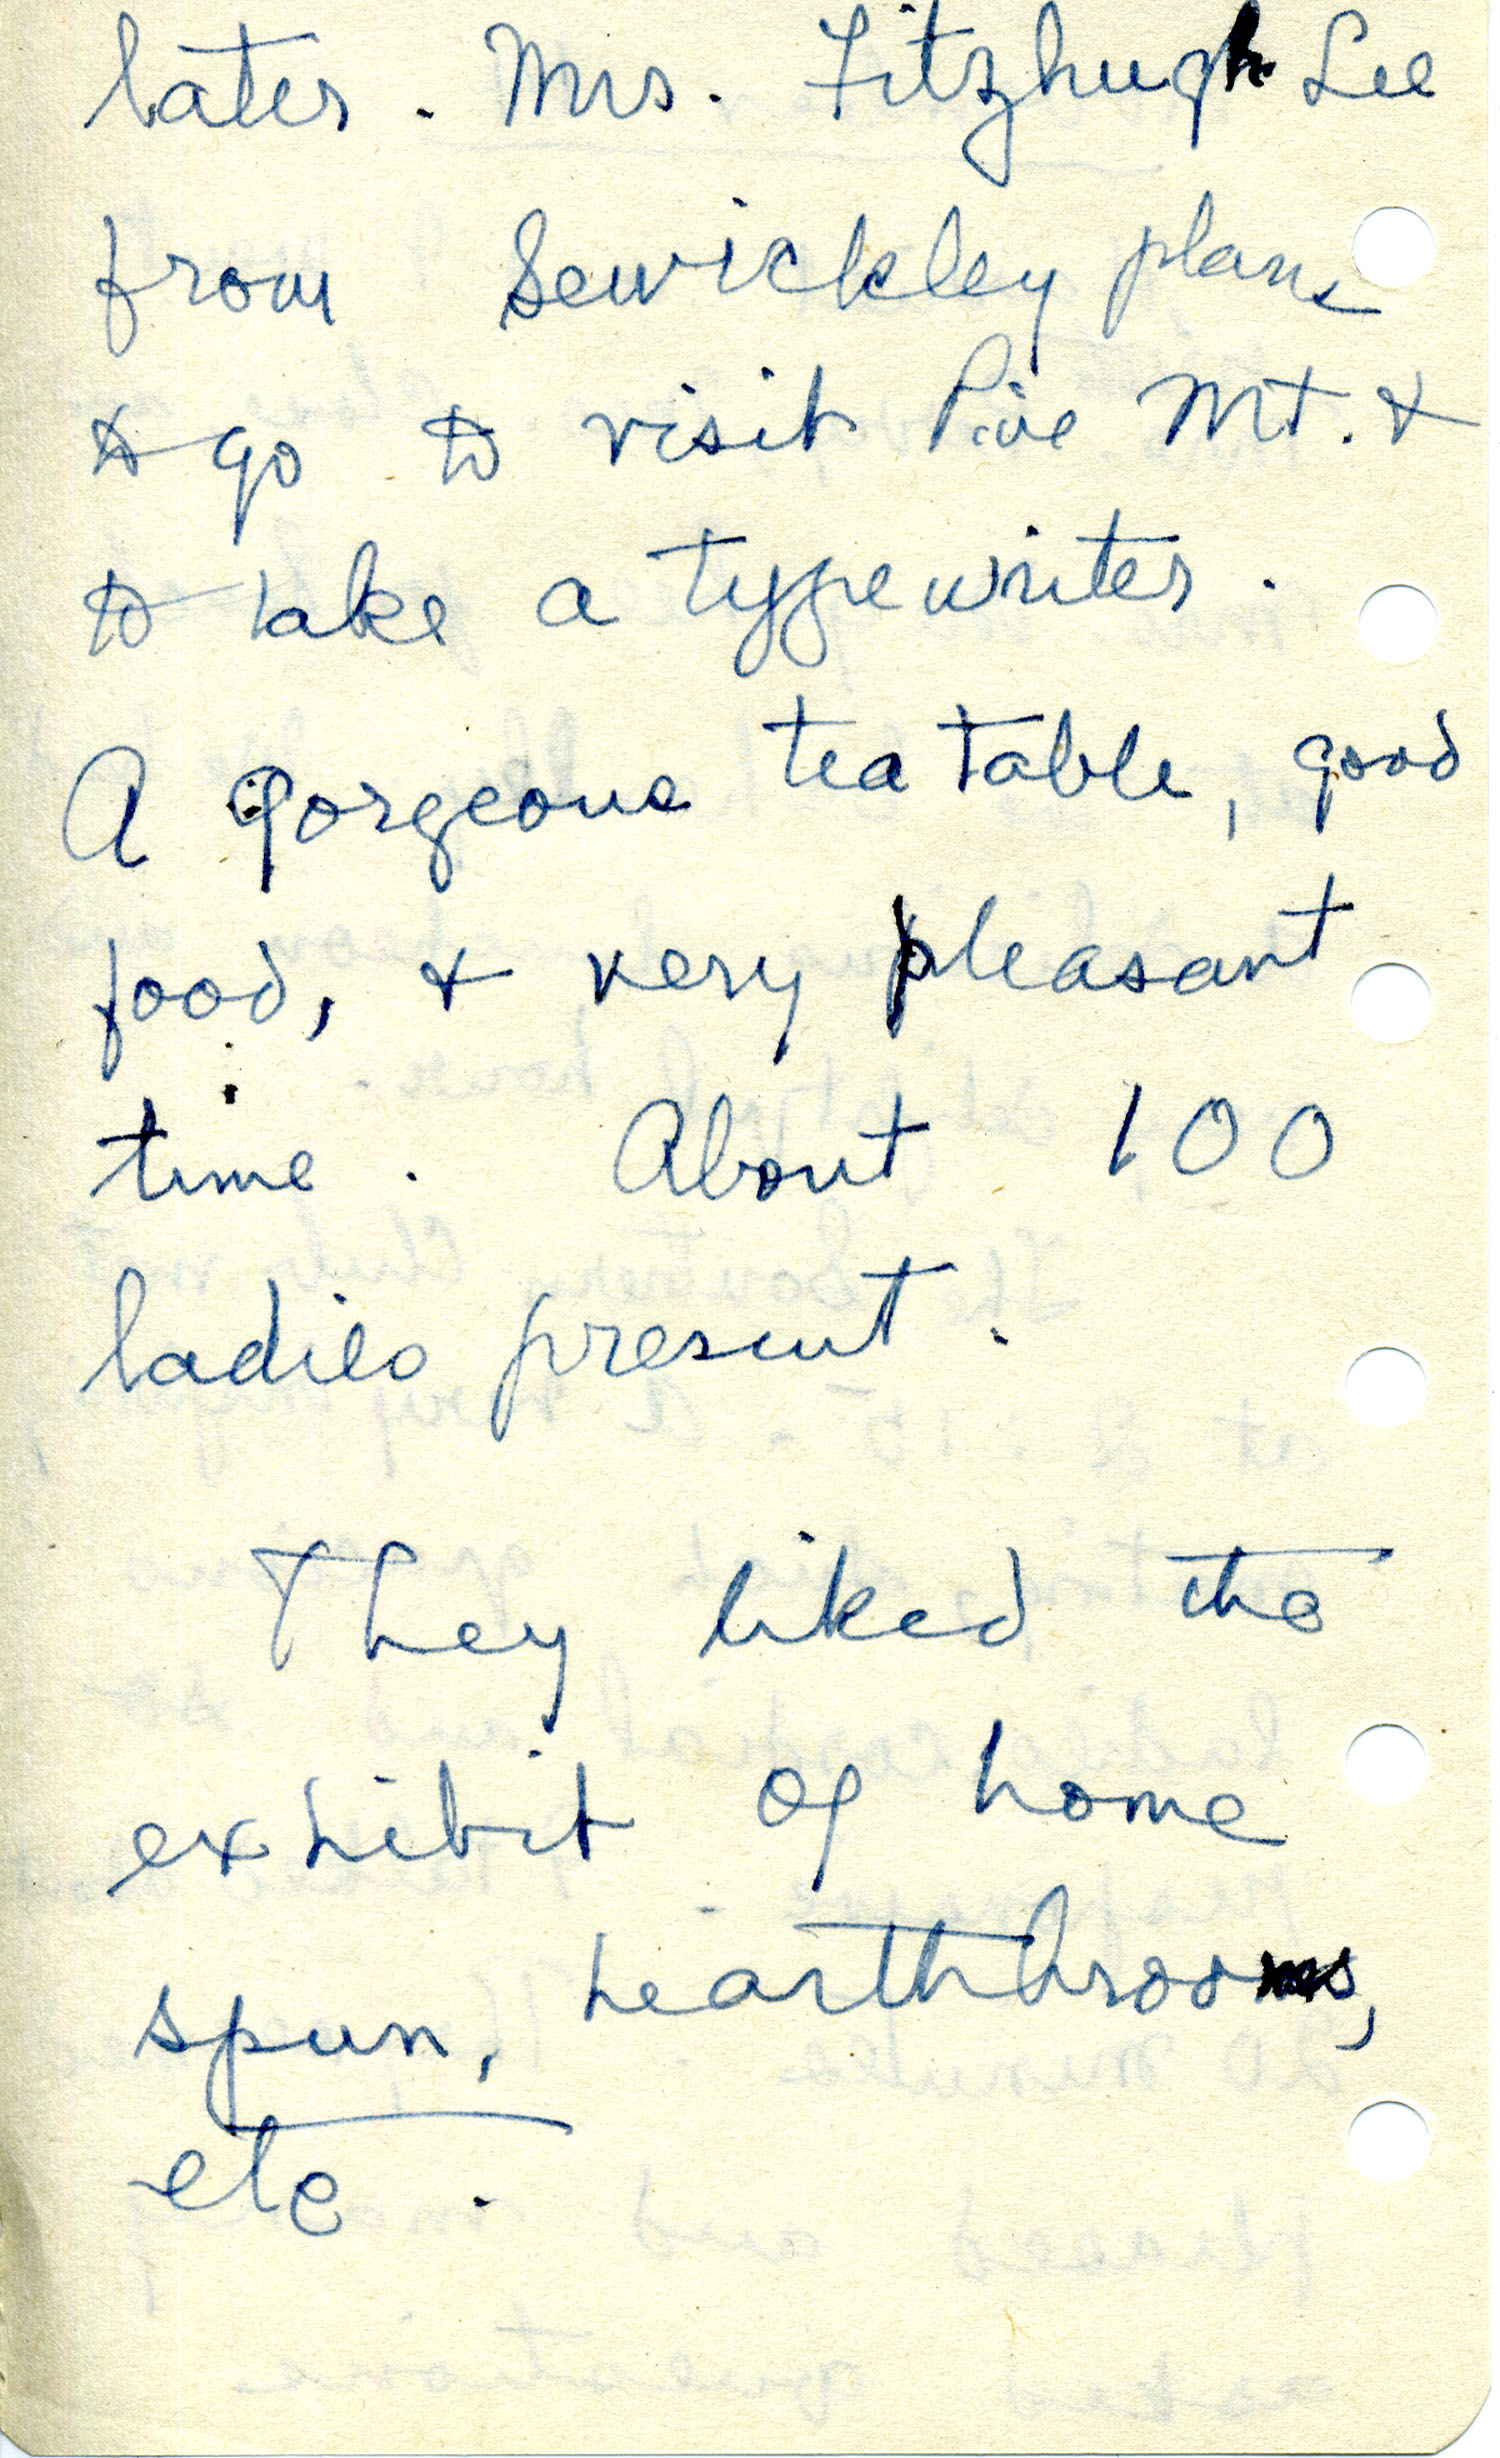 later. Mrs. Fitzhugh Lee
from Sewickley plans
to go to visit Pine Mt. &
to take a typewriter.
A gorgeous tea table, good
food, & very pleasant
time. About 100
ladies present.
They liked the
exhibit of home
spun, hearthbrooms,
etc.